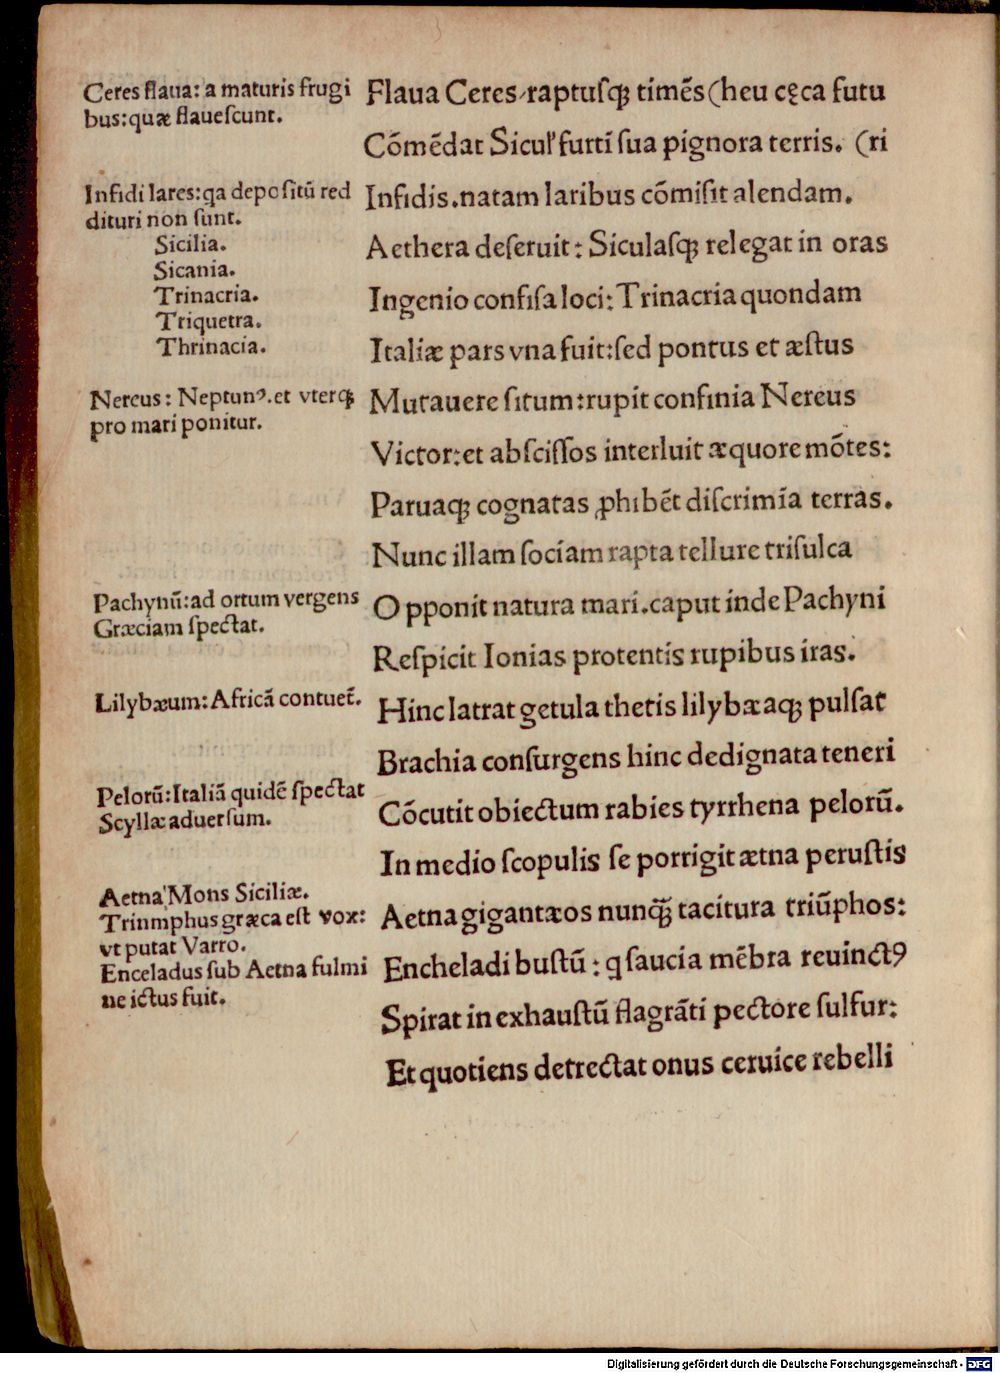 Ceres flaua: a maturis frugi
bus:quæ flaueſcunt.
Infidi lares:qa depoſitū red
dituri non ſunt.
Sicilia.
Sicania.
Trinacria.
Triquetra.
Thrinacia.
Nereus: Neptunꝰ.et vterqꝫ
pro mari ponitur.
Pachynū:ad ortum vergens
Græciam ſpectat.
Lilybæum: Africā contuet̄.
Pelorū:Italiā quidē ſpectat
Scyllæ aduerſum.
Aetna Mons Siciliæ.
Trinmphus græca eſt vox:
vt putat Varro.
Enceladus ſub Aetna fulmi
ne ictus fuit.
Flaua Ceres/raptuſqꝫ timēs (heu cęca futu
Cōmēdat Siculꝰ furti ſua pignora terris. (ri
Infidis.natam laribus cōmiſit alendam.
Aethera deſeruit: Siculaſqꝫ relegat in oras
Ingenio confiſa loci: Trinacria quondam
Italiæ pars vna fuit:ſed pontus et æſtus
Mutauere ſitum:rupit confinia Nereus
Victor:et abſciſſos interluit æquore mōtes:
Paruaqꝫ cognatas ꝓhibēt diſcrimīa terras.
Nunc illam ſociam rapta tellure triſulca
Opponit natura mari.caput inde Pachyni
Reſpicit Ionias protentis rupibus iras.
Hinc latrat getula thetis lilybæaqꝫ pulſat
Brachia conſurgens hinc dedignata teneri
Cōcutit obiectum rabies tyrrhena pelorū.
In medio ſcopulis ſe porrigit ætna peruſtis
Aetna gigantæos nunqꝫ̄ tacitura triūphos:
Encheladi buſtū : q ſaucia mēbra reuinctꝰ
Spirat inexhauſtū flagrāti pectore ſulfur:
Et quotiens detrectat onus ceruice rebelli
Digitalisierung gefördert durch die Deutsche Forschungsgemeinschaft - DFG